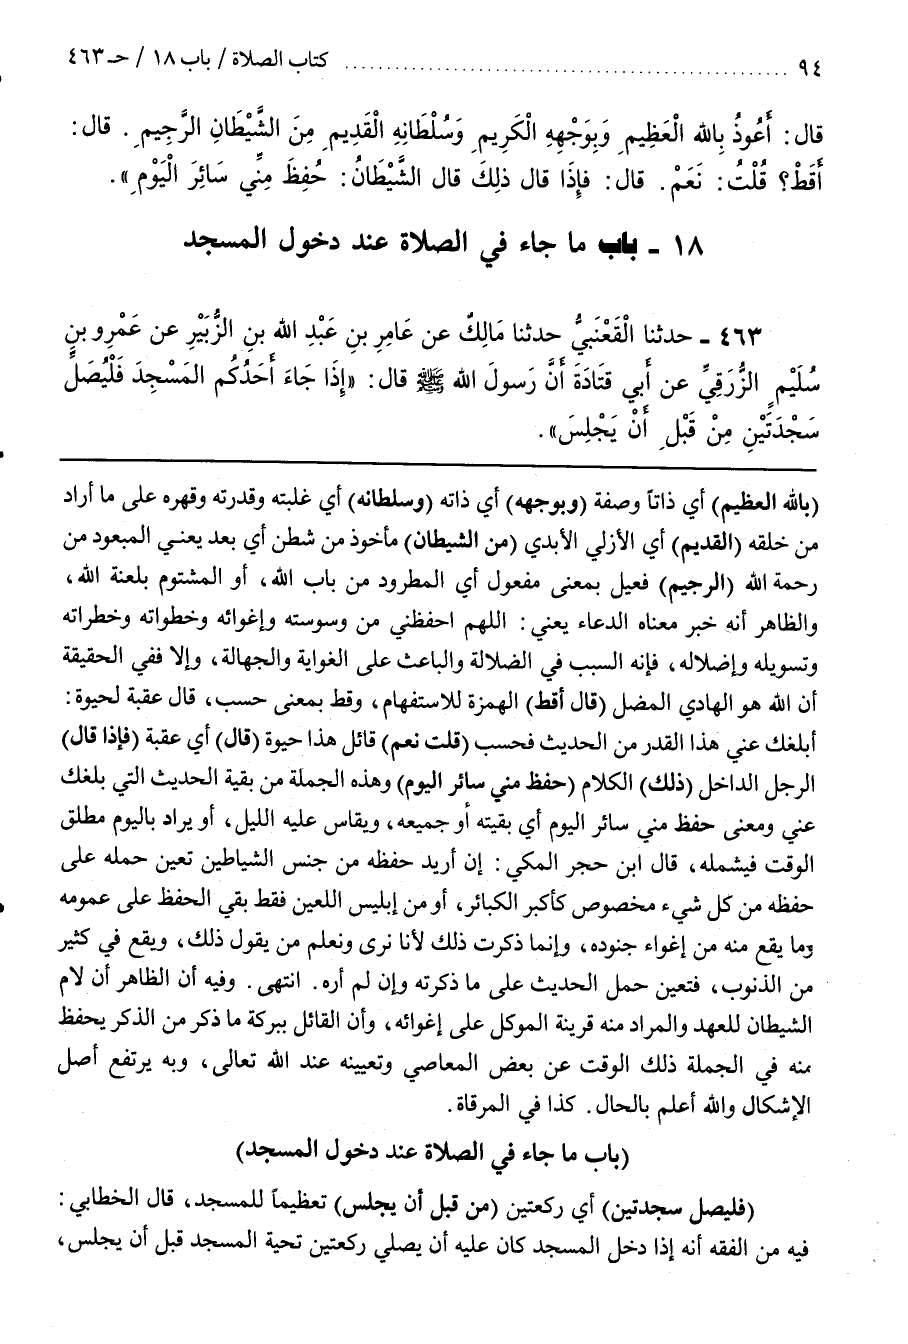 ٩٤ ........................................ كتاب الصلاة / باب ١٨ / حـ ٤٦٣
قال: أَعُوذُ بِالله الْعَظِيمِ وَبِوَجْهِهِ الْكَرِيمِ وَسُلْطَانِهِ الْقَدِيمِ مِنَ الشَّيْطَانِ الرَّجِيمِ. قال:
أَقَطْ؟ قُلْتُ: نَعَمْ. قال: فإِذَا قال ذلِكَ قال الشَّيْطَانُ: حُفِظَ مِنِّي سَائِرَ الْيَوْمِ».
١٨ ـ باب ما جاء في الصلاة عند دخول المسجد
٤٦٣ ـ حدثنا الْقَعْنَبِيُّ حدثنا مَالِكٌ عن عَامِرِ بنِ عَبْدِ الله بنِ الزُّبَيْرِ عن عَمْرِو بنِ
سُلَيْمٍ الزُّرَقِيِّ عن أَبي قتَادَةَ أَنَّ رَسولَ الله ﷺ قال: «إِذَا جَاءَ أَحَدُكُم المَسْجِدَ فَلْيُصَلِّ
سَجْدَتَيْنِ مِنْ قَبْلِ أَنْ يَجْلِسَ».
(بالله العظيم) أي ذاتاً وصفة (وبوجهه) أي ذاته (وسلطانه) أي غلبته وقدرته وقهره على ما أراد
من خلقه (القديم) أي الأزلي الأبدي (من الشيطان) مأخوذ من شطن أي بعد يعني المبعود من
رحمة الله (الرجيم) فعيل بمعنى مفعول أي المطرود من باب الله، أو المشتوم بلعنة الله،
والظاهر أنه خبر معناه الدعاء يعني: اللهم احفظني من وسوسته وإغوائه وخطواته وخطراته
وتسويله وإضلاله، فإنه السبب في الضلالة والباعث على الغواية والجهالة، وإلا ففي الحقيقة
أن الله هو الهادي المضل (قال أقط) الهمزة للاستفهام، وقط بمعنى حسب، قال عقبة لحيوة:
أبلغك عني هذا القدر من الحديث فحسب (قلت نعم) قائل هذا حيوة (قال) أي عقبة (فإذا قال)
الرجل الداخل (ذلك) الكلام (حفظ مني سائر اليوم) وهذه الجملة من بقية الحديث التي بلغك
عني ومعنى حفظ مني سائر اليوم أي بقيته أو جميعه، ويقاس عليه الليل، أو يراد باليوم مطلق
الوقت فيشمله، قال ابن حجر المكي: إن أريد حفظه من جنس الشياطين تعين حمله على
حفظه من كل شيء مخصوص كأكبر الكبائر، أو من إبليس اللعين فقط بقي الحفظ على عمومه
وما يقع منه من إغواء جنوده، وإنما ذكرت ذلك لأنا نرى ونعلم من يقول ذلك، ويقع في كثير
من الذنوب، فتعين حمل الحديث على ما ذكرته وإن لم أره. انتهى. وفيه أن الظاهر أن لام
الشيطان للعهد والمراد منه قرينة الموكل على إغوائه، وأن القائل ببركة ما ذكر من الذكر يحفظ
منه في الجملة ذلك الوقت عن بعض المعاصي وتعيينه عند الله تعالى، وبه يرتفع أصل
الإشكال والله أعلم بالحال. كذا في المرقاة.
(باب ما جاء في الصلاة عند دخول المسجد)
(فليصل سجدتين) أي ركعتين (من قبل أن يجلس) تعظيماً للمسجد، قال الخطابي:
فيه من الفقه أنه إذا دخل المسجد كان عليه أن يصلي ركعتين تحية المسجد قبل أن يجلس،